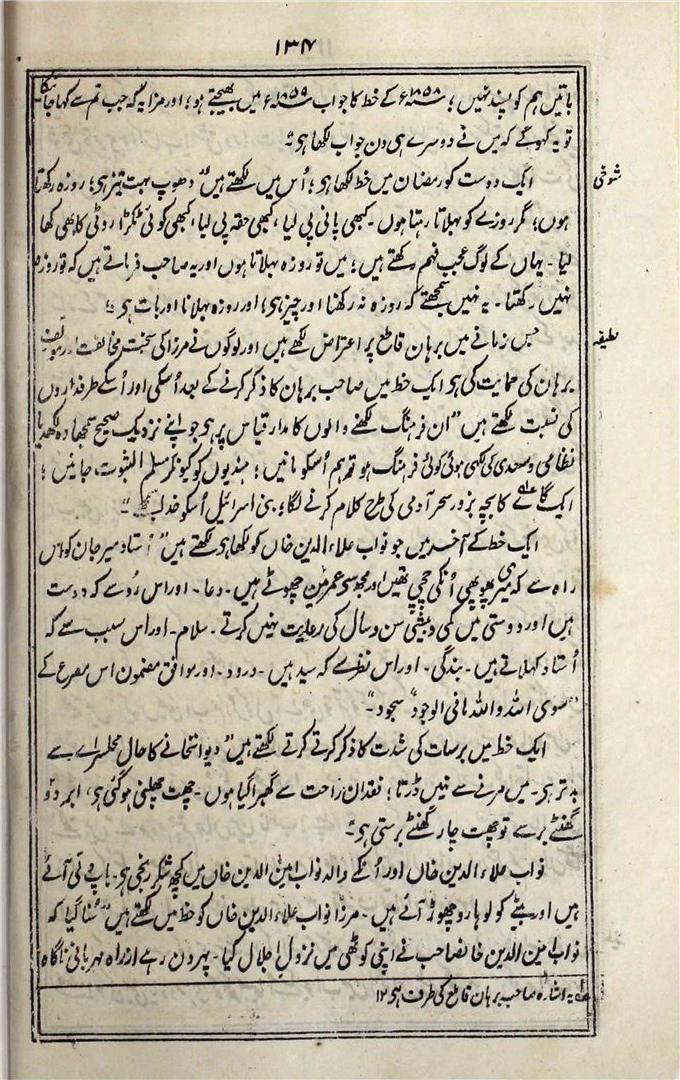 ۱۳۴
باتیں ہم کو پسند نہیں؛ ۱۸۵۸ء کے خط کا جواب ۱۸۵۹ء میں بھیجتے ہو؛ اور مزا یہ کہ جب تم سے کہا جائیگا
تو یہ کہوگے کہ میں نے دوسرے ہی دن جواب لکھا ہی"
شوخی
ایک دوست کو رمضان میں خط لکھا ہی؛ اُس میں لکھتے ہیں "دھوپ بہت تیز ہی؛ روزہ رکھتا
ہوں؛ مگر روزے کو بہلاتا رہتا ہوں۔ کبھی پانی پی لیا، کبھی حقہ پی لیا، کبھی کوئی ٹکڑا روٹی کا بھی کھا
لیا۔ یہاں کے لوگ عجب فہم رکھتے ہیں؛ میں تو روزہ بہلاتا ہوں اور یہ صاحب فرماتے ہیں کہ تو روزہ
نہیں رکھتا۔ یہ نہیں سمجھتے کہ روزہ نہ رکھنا اور چیز ہی؛ اور روزہ بہلانا اور بات ہی"
لطیفہ
جس زمانے میں برہان قاطع پر اعتراض لکھے ہیں اور لوگوں نے مرزا کی سخت مخالفت اور مولف
برہان کی حمایت کی ہی ایک خط میں صاحب برہان کا ذکر کرنے کے بعد اُسکی اور اُسکے طرفداروں
کی نسبت لکھتے ہیں "ان فرہنگ لکھنے والوں کا مدار قیاس پر ہی جو اپنے نزدیک صحیح سمجھا وہ لکھدیا
نظامی و سعدی کی لکھی ہوئی کوئی فرہنگ ہو تو ہم اُسکو مانیں؛ ہندیوں کو کیونکر مسلم الثبوت جانیں؛
ایک گائے کا بچہ بزور سحر آدمی کی طرح کلام کرنے لگا؛ بنی اسرائیل اُسکو خدا سمجھے"
ایک خط کے آخر میں جو نواب علاء الدین خاں کو لکھا ہی لکھتے ہیں "اُستاد میر جان کو اس
راہ سے کہ میری پھوپھی اُنکی چچی تھیں اور مجھ سے عمر میں چھوٹے ہیں۔ دعا۔ اور اس رُو سے کہ دوست
ہیں اور دوستی میں کمی و بیشی سن و سال کی رعایت نہیں کرتے۔ سلام۔ اور اس سبب سے کہ
اُستاد کہلاتے ہیں۔ بندگی۔ اور اس نظر سے کہ سید ہیں۔ درود۔ اور موافق مضمون اس مصرع کے
"سوی اللہ واللہ مافی الوجود" سجود"۔
ایک خط میں برسات کی شدت کا ذکر کرتے کرتے لکھتے ہیں "دیوانخانے کا حال محلسراے سے
بدتر ہی۔ میں مرنے سے نہیں ڈرتا؛ فقدان راحت سے گھبرا گیا ہوں۔ چھت چھلنی ہوگئی ہی، ابر دو
گھنٹے برسے تو چھت چار گھنٹے برستی ہی"
نواب علاء الدین خاں اور اُنکے والد نواب امین الدین خاں میں کچھ شکر رنجی ہی۔ باپ دلّی آئے
ہیں اور بیٹے کو لوہارو چھوڑ آئے ہیں۔ مرزا نواب علاء الدین خاں کو خط میں لکھتے ہیں "سُنا گیا کہ
نواب امین الدین خانصاحب نے اپنی کوٹھی میں نزول اجلال کیا۔ پہر دن رہے از راہ مہربانی ناگاہ
یہ اشارہ صاحب برہان قاطع کی طرف ہی ۱۲